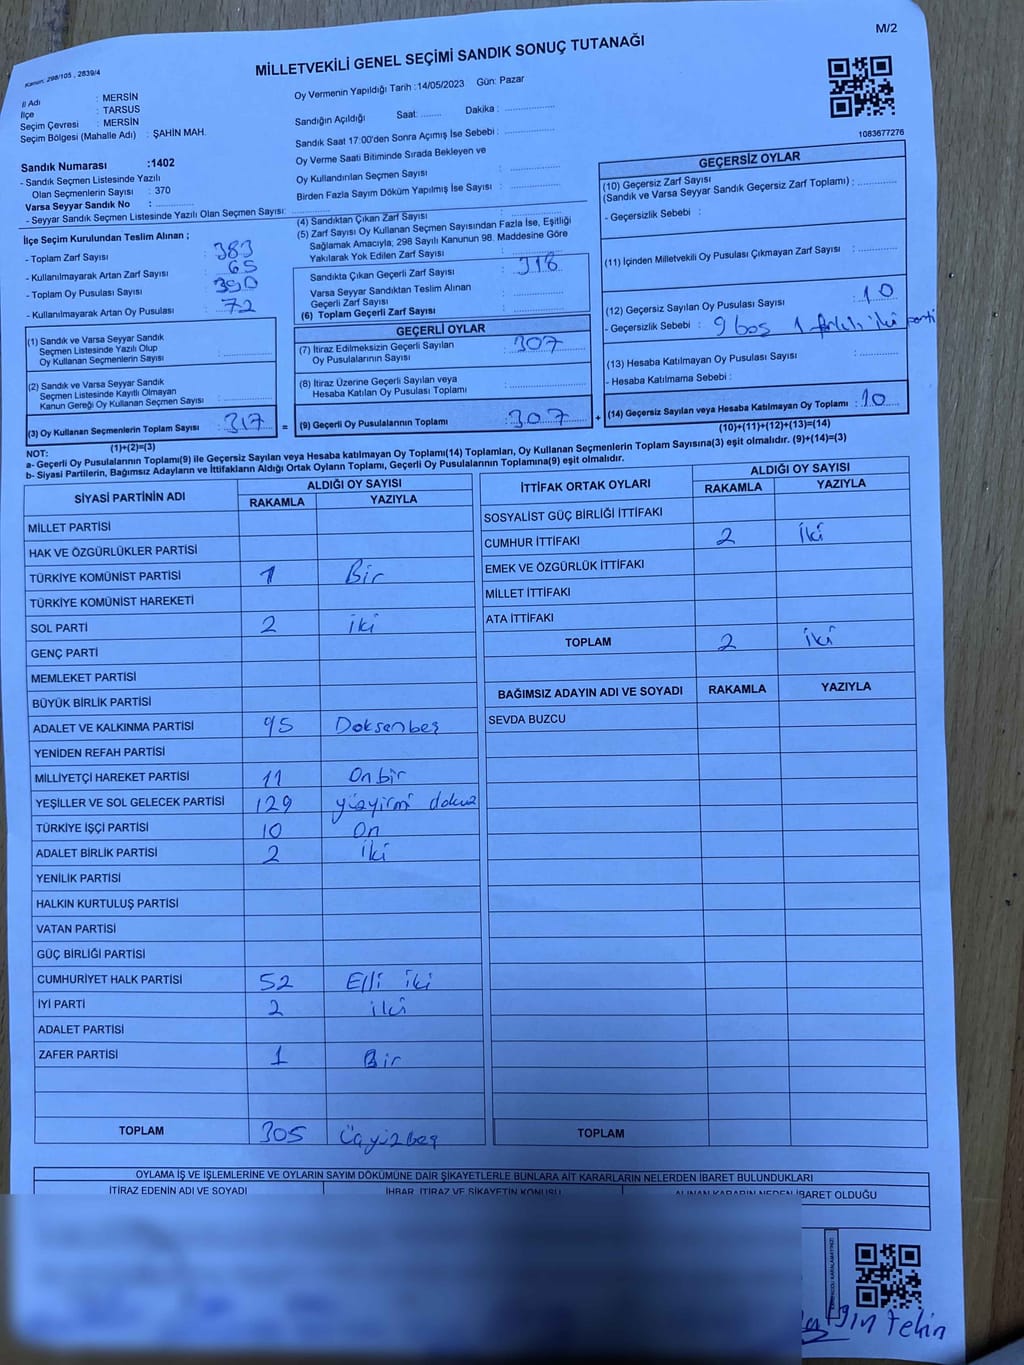 M/2
Kanun: 298/105 , 2839/4
MİLLETVEKİLİ GENEL SEÇİMİ SANDIK SONUÇ TUTANAĞI
İl Adı : MERSİN
İlçe : TARSUS
Seçim Çevresi : MERSİN
Seçim Bölgesi (Mahalle Adı) : ŞAHİN MAH.
Oy Vermenin Yapıldığı Tarih :14/05/2023 Gün: Pazar
Sandığın Açıldığı Saat: ........ Dakika : ................
Sandık Saat 17:00'den Sonra Açımış İse Sebebi : ................
Oy Verme Saati Bitiminde Sırada Bekleyen ve
Oy Kullandırılan Seçmen Sayısı : ................
Birden Fazla Sayım Döküm Yapılmış İse Sayısı : ................
1083677276
Sandık Numarası :1402
- Sandık Seçmen Listesinde Yazılı
Olan Seçmenlerin Sayısı : 370
Varsa Seyyar Sandık No : ............
- Seyyar Sandık Seçmen Listesinde Yazılı Olan Seçmen Sayısı: ............
İlçe Seçim Kurulundan Teslim Alınan ;
- Toplam Zarf Sayısı : 383
- Kullanılmayarak Artan Zarf Sayısı : 65
- Toplam Oy Pusulası Sayısı : 390
- Kullanılmayarak Artan Oy Pusulası : 72
(1) Sandık ve Varsa Seyyar Sandık
Seçmen Listesinde Yazılı Olup
Oy Kullanan Seçmenlerin Sayısı : ............
(2) Sandık ve Varsa Seyyar Sandık
Seçmen Listesinde Kayıtlı Olmayan
Kanun Gereği Oy Kullanan Seçmen Sayısı : ............
(3) Oy Kullanan Seçmenlerin Toplam Sayısı : 317
(1)+(2)=(3)
(4) Sandıktan Çıkan Zarf Sayısı : ............
(5) Zarf Sayısı Oy Kullanan Seçmen Sayısından Fazla İse, Eşitliği
Sağlamak Amacıyla; 298 Sayılı Kanunun 98. Maddesine Göre
Yakılarak Yok Edilen Zarf Sayısı : ............
Sandıkta Çıkan Geçerli Zarf Sayısı : 318
Varsa Seyyar Sandıktan Teslim Alınan
Geçerli Zarf Sayısı : ............
(6) Toplam Geçerli Zarf Sayısı : ............
GEÇERLİ OYLAR
(7) İtiraz Edilmeksizin Geçerli Sayılan
Oy Pusulalarının Sayısı : 307
(8) İtiraz Üzerine Geçerli Sayılan veya
Hesaba Katılan Oy Pusulası Toplamı : ............
= (9) Geçerli Oy Pusulalarının Toplamı : 307 +
GEÇERSİZ OYLAR
(10) Geçersiz Zarf Sayısı
(Sandık ve Varsa Seyyar Sandık Geçersiz Zarf Toplamı) : ............
- Geçersizlik Sebebi :
(11) İçinden Milletvekili Oy Pusulası Çıkmayan Zarf Sayısı : ............
(12) Geçersiz Sayılan Oy Pusulası Sayısı : 10
- Geçersizlik Sebebi : 9 boş 1 farklı iki parti
(13) Hesaba Katılmayan Oy Pusulası Sayısı : ............
- Hesaba Katılmama Sebebi :
(14) Geçersiz Sayılan veya Hesaba Katılmayan Oy Toplamı : 10
(10)+(11)+(12)+(13)=(14)
NOT:
a- Geçerli Oy Pusulalarının Toplamı(9) ile Geçersiz Sayılan veya Hesaba katılmayan Oy Toplamı(14) Toplamları, Oy Kullanan Seçmenlerin Toplam Sayısına(3) eşit olmalıdır. (9)+(14)=(3)
b- Siyasi Partilerin, Bağımsız Adayların ve İttifakların Aldığı Ortak Oyların Toplamı, Geçerli Oy Pusulalarının Toplamına(9) eşit olmalıdır.
SİYASİ PARTİNİN ADI ALDIĞI OY SAYISI
RAKAMLA YAZIYLA
MİLLET PARTİSİ
HAK VE ÖZGÜRLÜKLER PARTİSİ
TÜRKİYE KOMÜNİST PARTİSİ 1 Bir
TÜRKİYE KOMÜNİST HAREKETİ
SOL PARTİ 2 iki
GENÇ PARTİ
MEMLEKET PARTİSİ
BÜYÜK BİRLİK PARTİSİ
ADALET VE KALKINMA PARTİSİ 95 Doksanbeş
YENİDEN REFAH PARTİSİ
MİLLİYETÇİ HAREKET PARTİSİ 11 On bir
YEŞİLLER VE SOL GELECEK PARTİSİ 129 yüzyirmi dokuz
TÜRKİYE İŞÇİ PARTİSİ 10 On
ADALET BİRLİK PARTİSİ 2 iki
YENİLİK PARTİSİ
HALKIN KURTULUŞ PARTİSİ
VATAN PARTİSİ
GÜÇ BİRLİĞİ PARTİSİ
CUMHURİYET HALK PARTİSİ 52 Elli iki
İYİ PARTİ 2 iki
ADALET PARTİSİ
ZAFER PARTİSİ 1 Bir
TOPLAM 305 Üçyüzbeş
İTTİFAK ORTAK OYLARI ALDIĞI OY SAYISI
RAKAMLA YAZIYLA
SOSYALİST GÜÇ BİRLİĞİ İTTİFAKI
CUMHUR İTTİFAKI 2 iki
EMEK VE ÖZGÜRLÜK İTTİFAKI
MİLLET İTTİFAKI
ATA İTTİFAKI
TOPLAM 2 iki
BAĞIMSIZ ADAYIN ADI VE SOYADI RAKAMLA YAZIYLA
SEVDA BUZCU
TOPLAM
OYLAMA İŞ VE İŞLEMLERİNE VE OYLARIN SAYIM DÖKÜMÜNE DAİR ŞİKAYETLERLE BUNLARA AİT KARARLARIN NELERDEN İBARET BULUNDUKLARI
İTİRAZ EDENİN ADI VE SOYADI İHBAR, İTİRAZ VE ŞİKAYETİN KONUSU ALINAN KARARIN NEDEN İBARET OLDUĞU
tekin